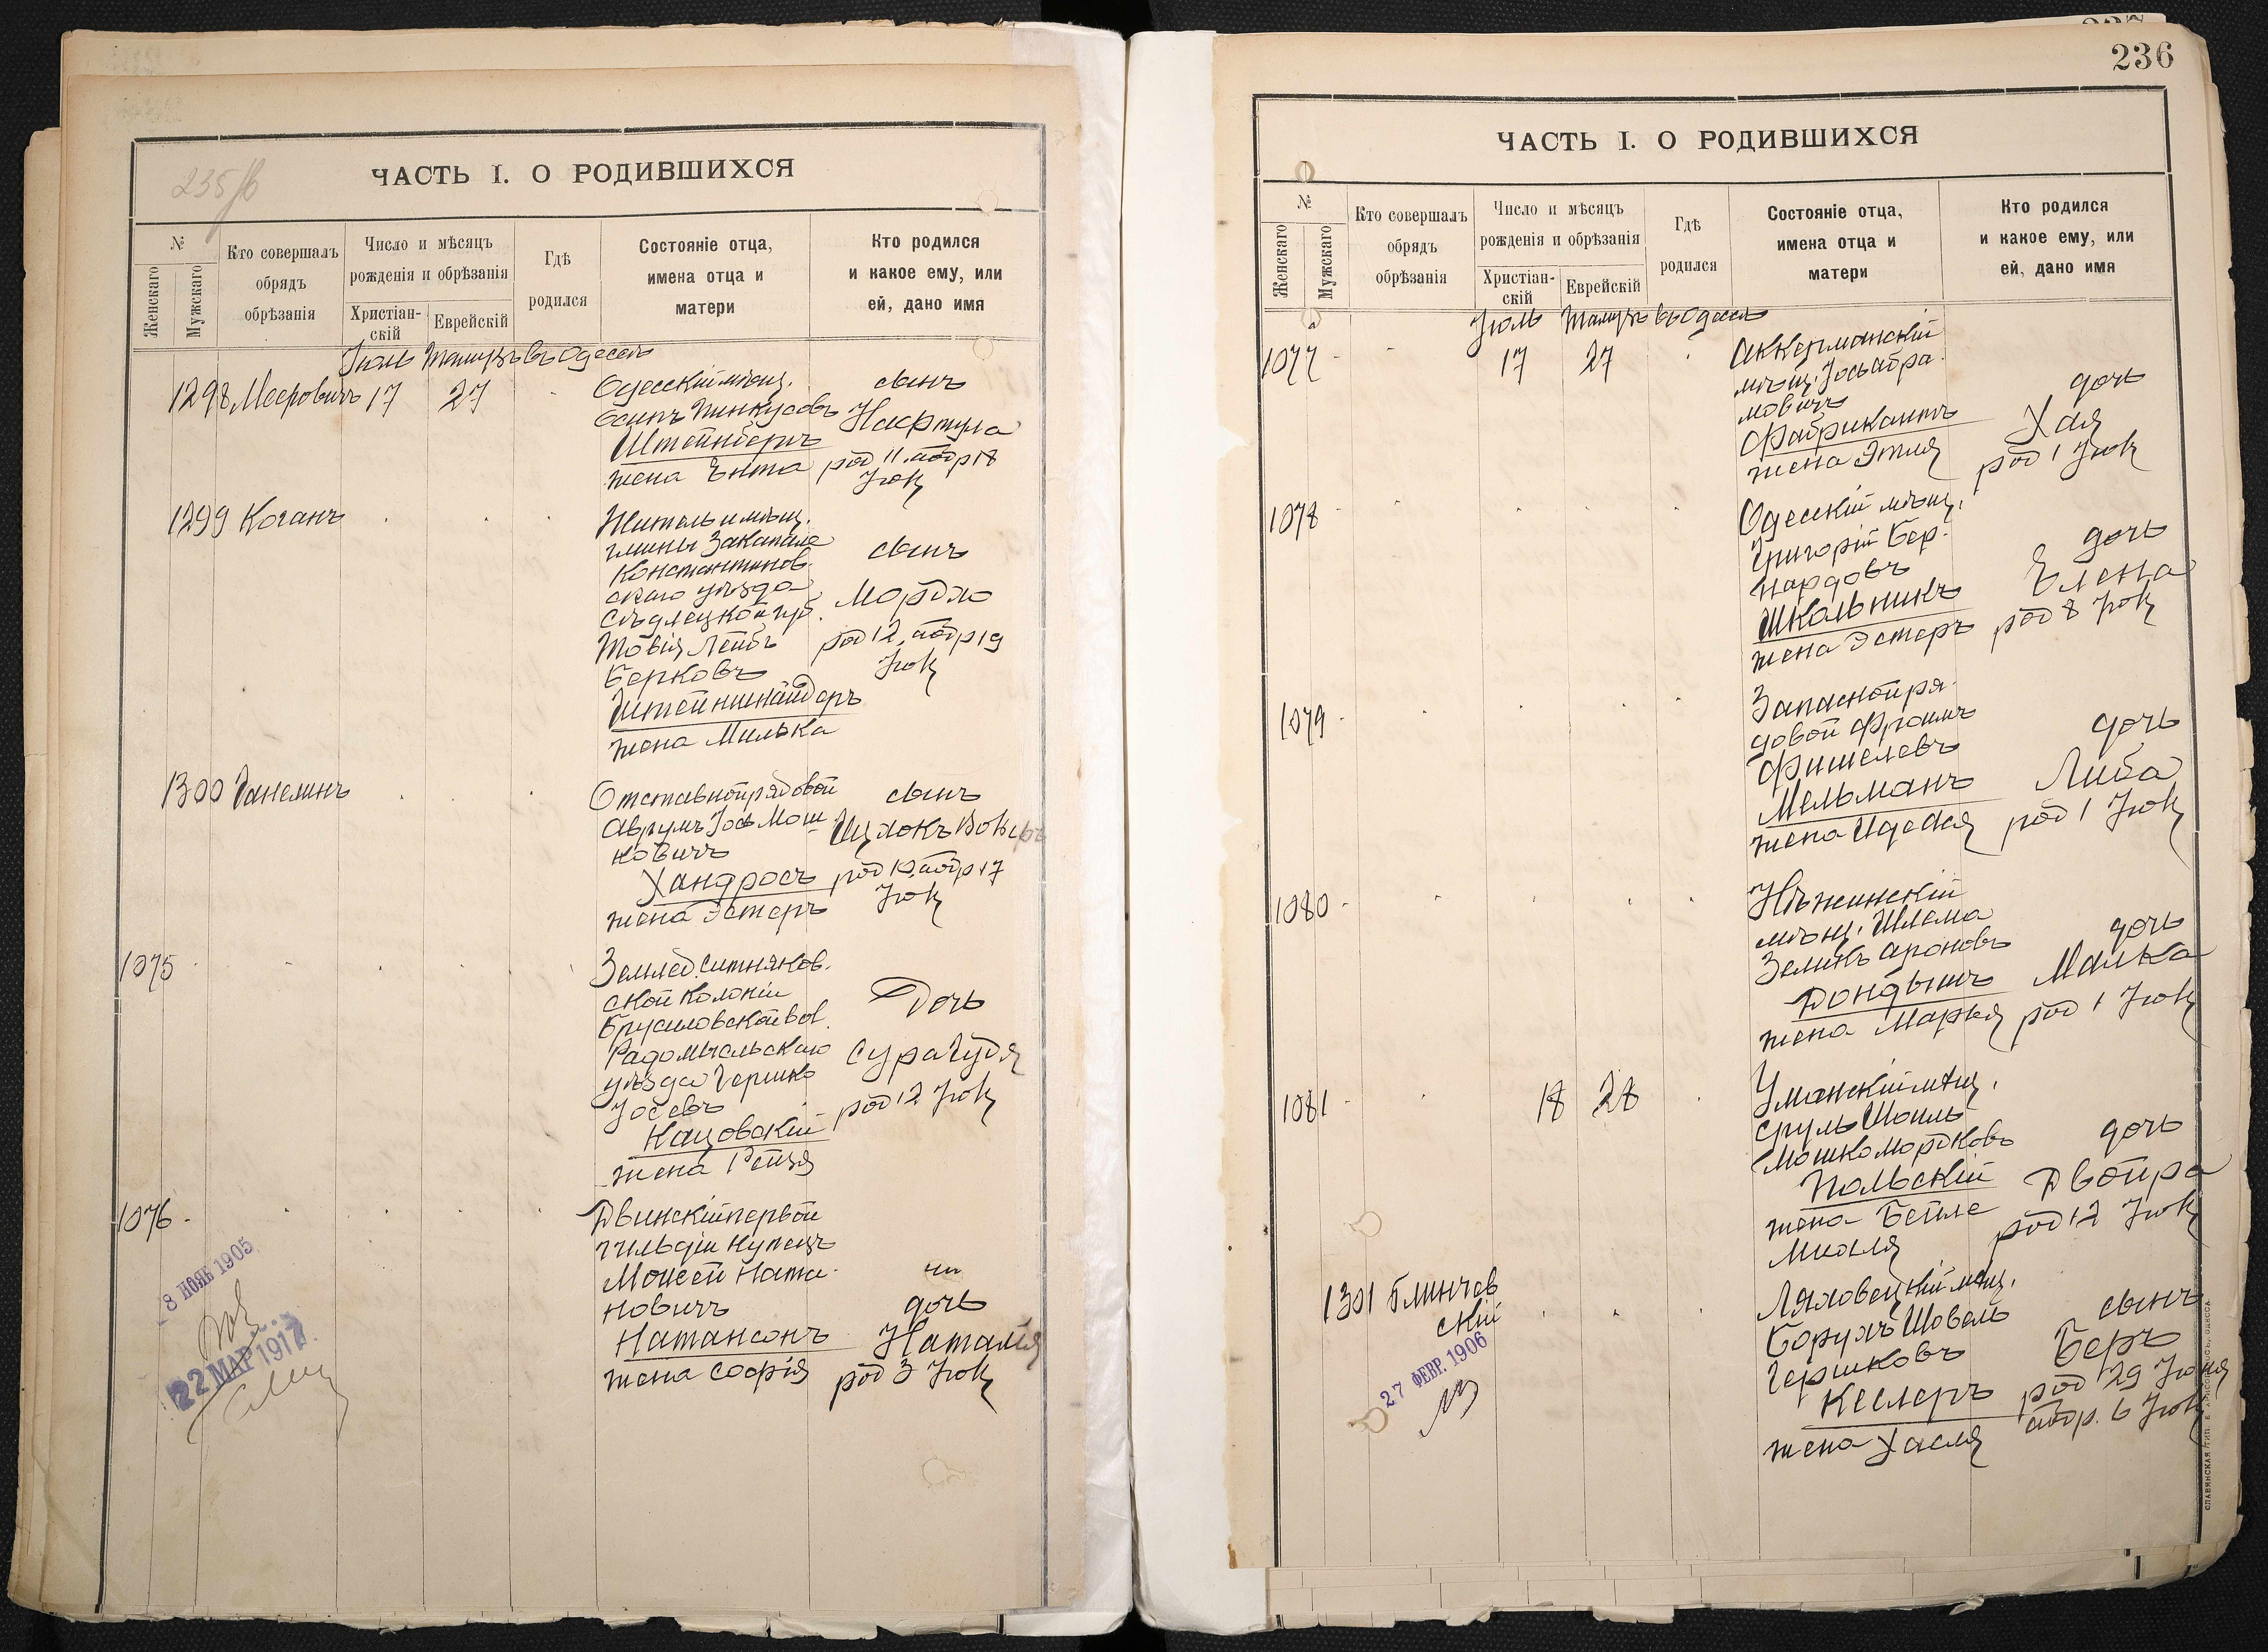 235/б
ЧАСТЬ I. О РОДИВШИХСЯ
№
Женскаго
Мужскаго
Кто совершалъ
обрядъ
обрѣзанія
Число и мѣсяцъ
рожденія и обрѣзанія
Христіан-
скій
Еврейскій
Гдѣ
родился
Состояніе отца,
имена отца и
матери
Кто родился
и какое ему, или
ей, дано имя
Іюль Тамузъ въ Одессѣ
1298 Меерович 17 27
Одесскій мѣщ.
Осипъ Пинкусовъ
Штейнбергъ
жена Ента
сынъ
Нафтула
род 11 обр 18
Іюля
1299 Коганъ
Житель и мѣщ.
гмины
Константинов
скаго уѣзда
Сѣдлецкой губ.
Товія Лейбъ
Берковъ
жена Милька
сынъ
Мордко
род 12 обр 19
Іюля
1300
Отставной рядовой
Аврумъ Іось Мош
ковичъ
Хандросъ
жена Эстеръ
сынъ
род 10 обр 17
Іюля
1075
Землед. Ситняков.
ской колоніи
Брусиловской вол.
Радомысльскаго
уѣзда Гершко
Іосевъ
Кацовскій
жена Рейзя
Дочь
Сура Гудя
род 12 Іюля
1076
Двинскій первой
гильдіи купецъ
Моисей Ната-
новичъ
Натансонъ
жена Софія
дочь
Наталія
род 3 Іюля
8 НОЯБ 1905
22 МАР 1917
236
ЧАСТЬ I. О РОДИВШИХСЯ
№
Женскаго
Мужскаго
Кто совершалъ
обрядъ
обрѣзанія
Число и мѣсяцъ
рожденія и обрѣзанія
Христіан-
скій
Еврейскій
Гдѣ
родился
Состояніе отца,
имена отца и
матери
Кто родился
и какое ему, или
ей, дано имя
Іюль Тамузъ въ Одессѣ
1077 17 27
Аккерманскій
мѣщ. Іось Абра
мовичъ
Фабрикантъ
жена Этля
дочь
Хая
род 1 Іюля
1078
Одесскій мѣщ.
Григорій Бер-
нардовъ
Школьникъ
жена Эстеръ
дочь
Елена
род 8 Іюля
1079
Запасной ря-
довой Фроимъ
Фишелевъ
Мельманъ
жена
дочь
Либа
род 1 Іюля
1080
Нѣжинскій
мѣщ. Шлема
Зеликъ Ароновъ
Дондышъ
жена Марья
дочь
Малка
род 1 Іюля
1081 18 28
Уманскій мѣщ.
Сруль Шоиль
Мошко Мордковъ
Польскій
жена Бейле
дочь
Двойра
род 12 Іюля
1301 Блинчев
скій
Ляховецкій мѣщ.
Борухъ Шовель
Гершковъ
Кеслеръ
жена Хасля
сынъ
Беръ
род 29 Іюня
обр. 6 Іюля
27 ФЕВР. 1906